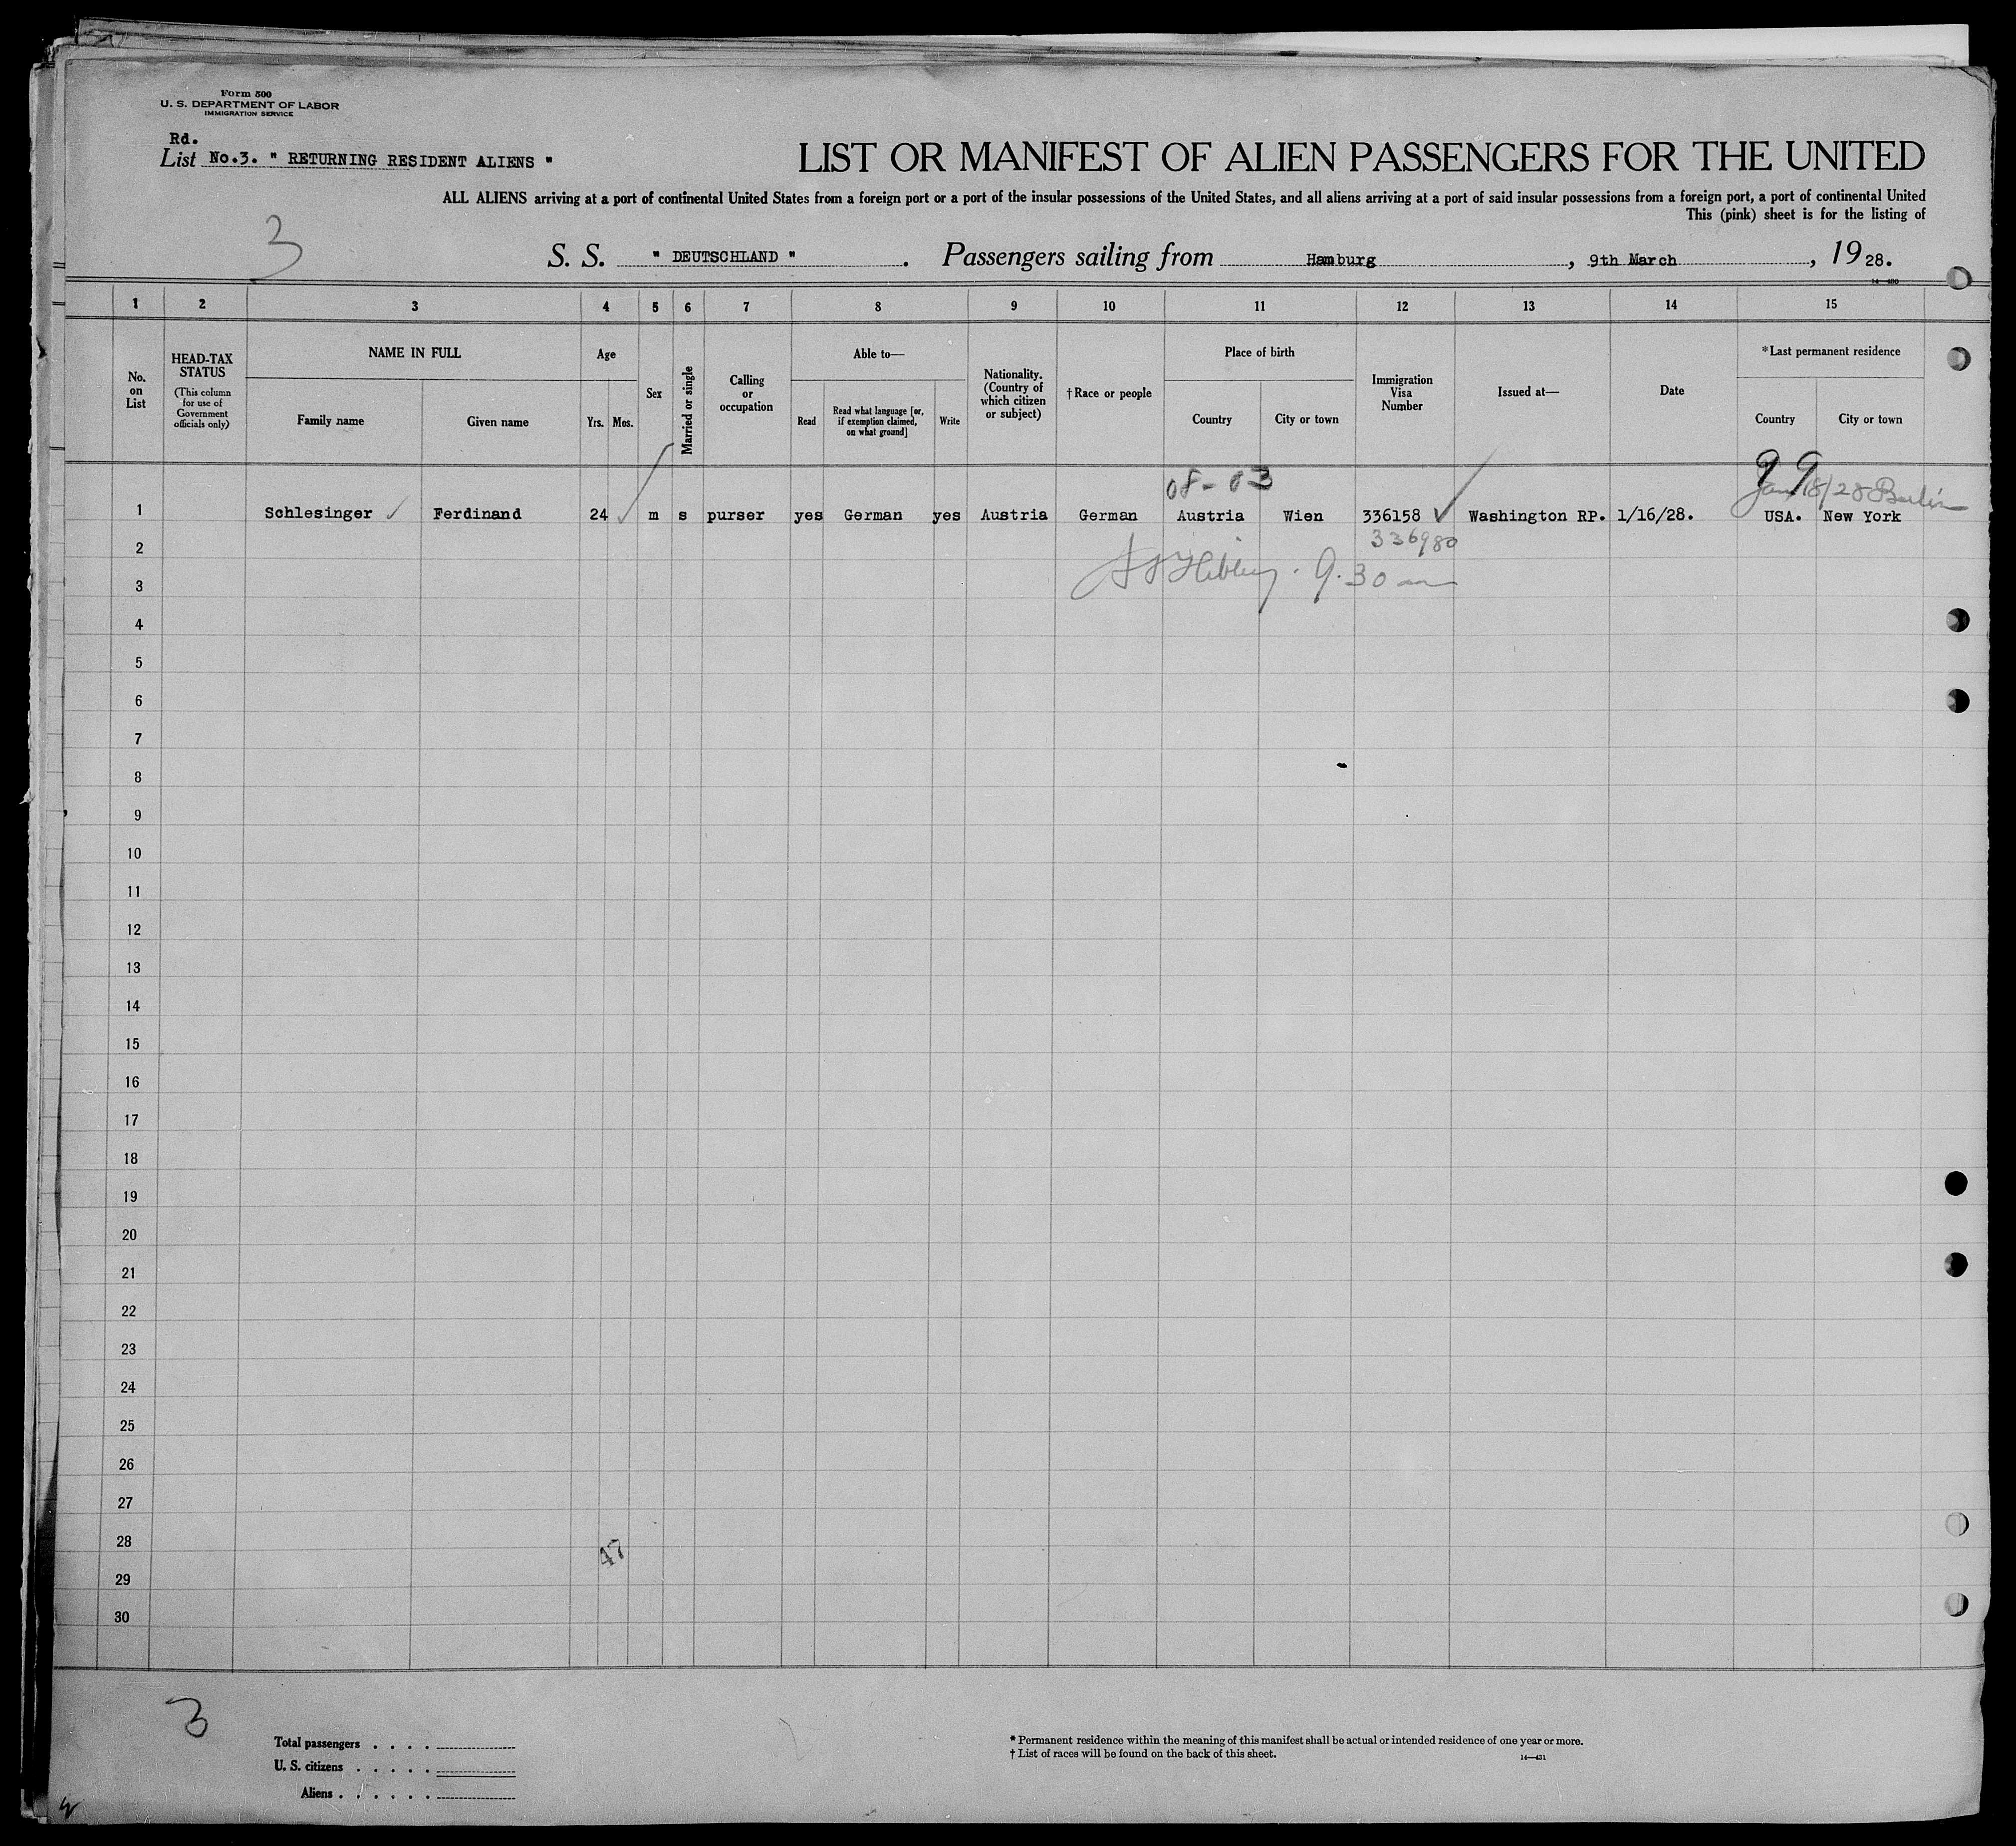 Form 500
U. S. DEPARTMENT OF LABOR
IMMIGRATION SERVICE
Rd.
List No.3. " RETURNING RESIDENT ALIENS "
LIST OR MANIFEST OF ALIEN PASSENGERS FOR THE UNITED
ALL ALIENS arriving at a port of continental United States from a foreign port or a port of the insular possessions of the United States, and all aliens arriving at a port of said insular possessions from a foreign port, a port of continental United
This (pink) sheet is for the listing of
3
S. S. " DEUTSCHLAND " . Passengers sailing from Hamburg , 9th March , 19 28.
1 2 3 4 5 6 7 8 9 10 11 12 13 14 15
No. on List
HEAD-TAX STATUS
(This column for use of Government officials only)
NAME IN FULL
Family name Given name
Age
Yrs. Mos.
Sex
Married or single
Calling or occupation
Able to—
Read
Read what language [or, if exemption claimed, on what ground]
Write
Nationality. (Country of which citizen or subject)
†Race or people
Place of birth
Country City or town
Immigration Visa Number
Issued at—
Date
*Last permanent residence
Country City or town
08-03
99
Jan 18/28 Berlin
1 Schlesinger ✓ Ferdinand 24 ✓ m s purser yes German yes Austria German Austria Wien 336158 ✓ Washington RP. 1/16/28. USA. New York
336980
2
9.30 am
3
4
5
6
7
8
9
10
11
12
13
14
15
16
17
18
19
20
21
22
23
24
25
26
27
28
47
29
30
3
Total passengers . . . .
U. S. citizens . . . . .
Aliens . . . . . .
* Permanent residence within the meaning of this manifest shall be actual or intended residence of one year or more.
† List of races will be found on the back of this sheet.
14—431